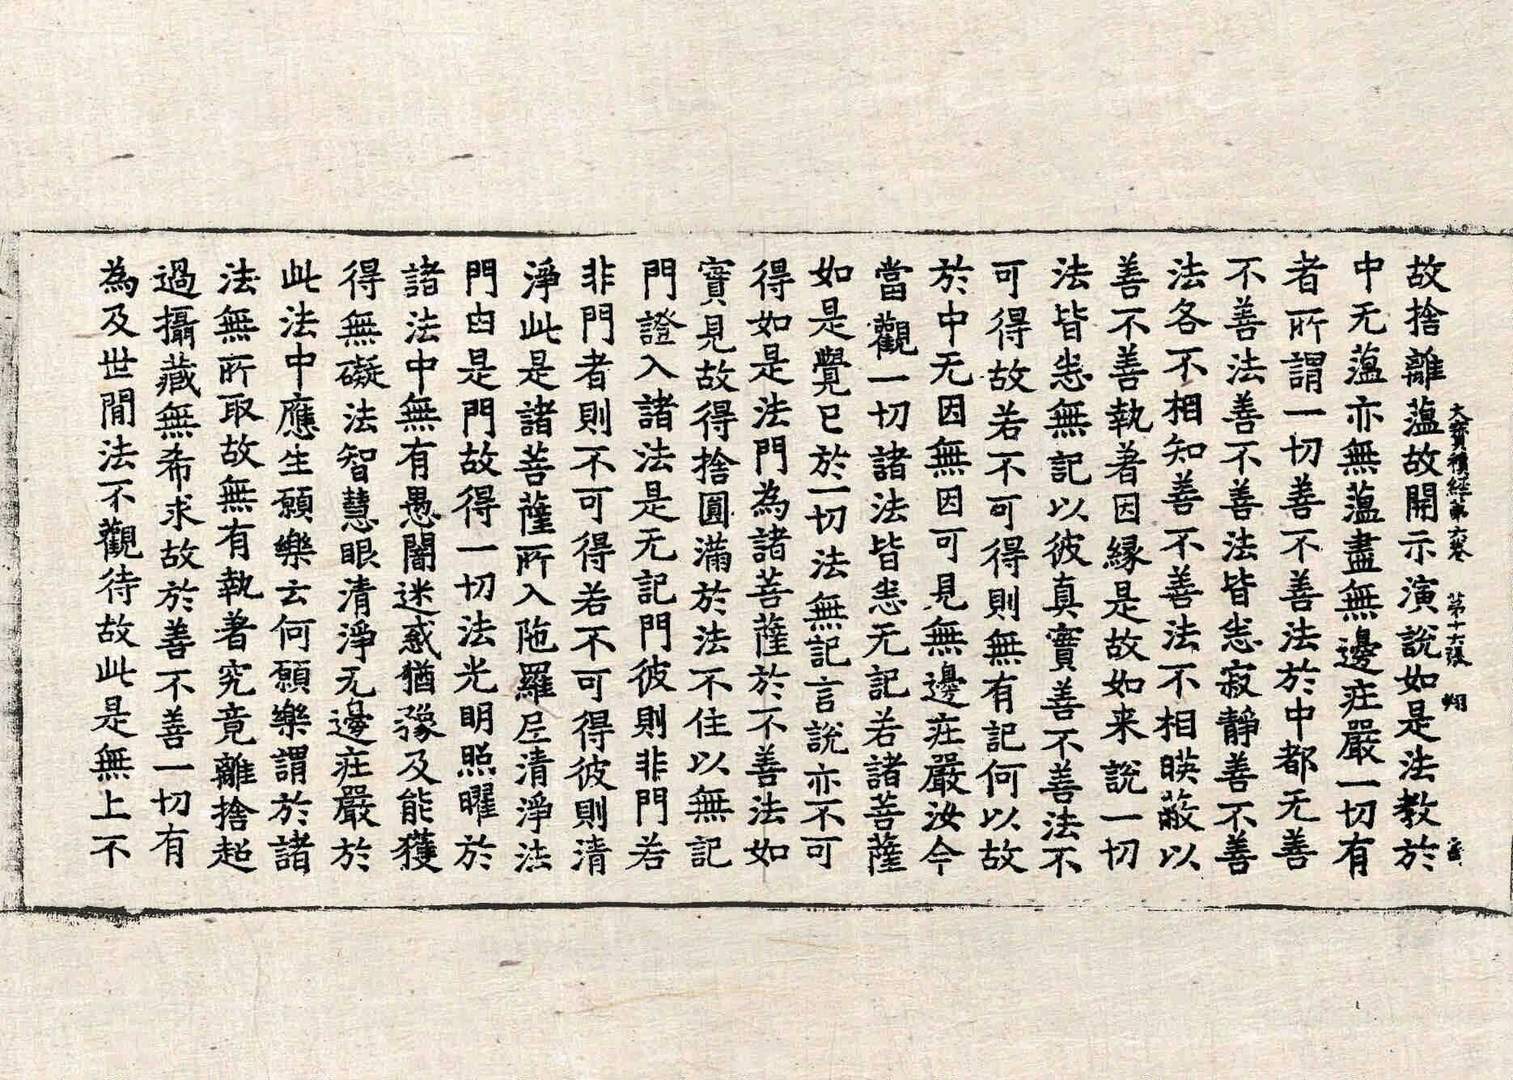 故捨離薀故開示演說如是法教於
大寶積經第六卷 第十六張 翔
中无薀亦無薀盡無邊㽵嚴一切有
者所謂一切善不善法於中都无善
不善法善不善法皆悉寂靜善不善
法各不相知善不善法不相暎蔽以
善不善執著因緣是故如来說一切
法皆悉無記以彼真實善不善法不
可得故若不可得則無有記何以故
於中无因無因可見無邊㽵嚴汝今
當觀一切諸法皆悉无記若諸菩薩
如是覺已於一切法無記言說亦不可
得如是法門為諸菩薩於不善法如
實見故得捨圓滿於法不住以無記
門證入諸法是无記門彼則非門若
非門者則不可得若不可得彼則清
淨此是諸菩薩所入陁羅尼清淨法
門由是門故得一切法光明照曜於
諸法中無有愚闇迷惑猶豫及能獲
得無礙法智慧眼清淨无邊㽵嚴於
此法中應生願樂云何願樂謂於諸
法無所取故無有執著究竟離捨超
過攝藏無希求故於善不善一切有
為及世間法不觀待故此是無上不